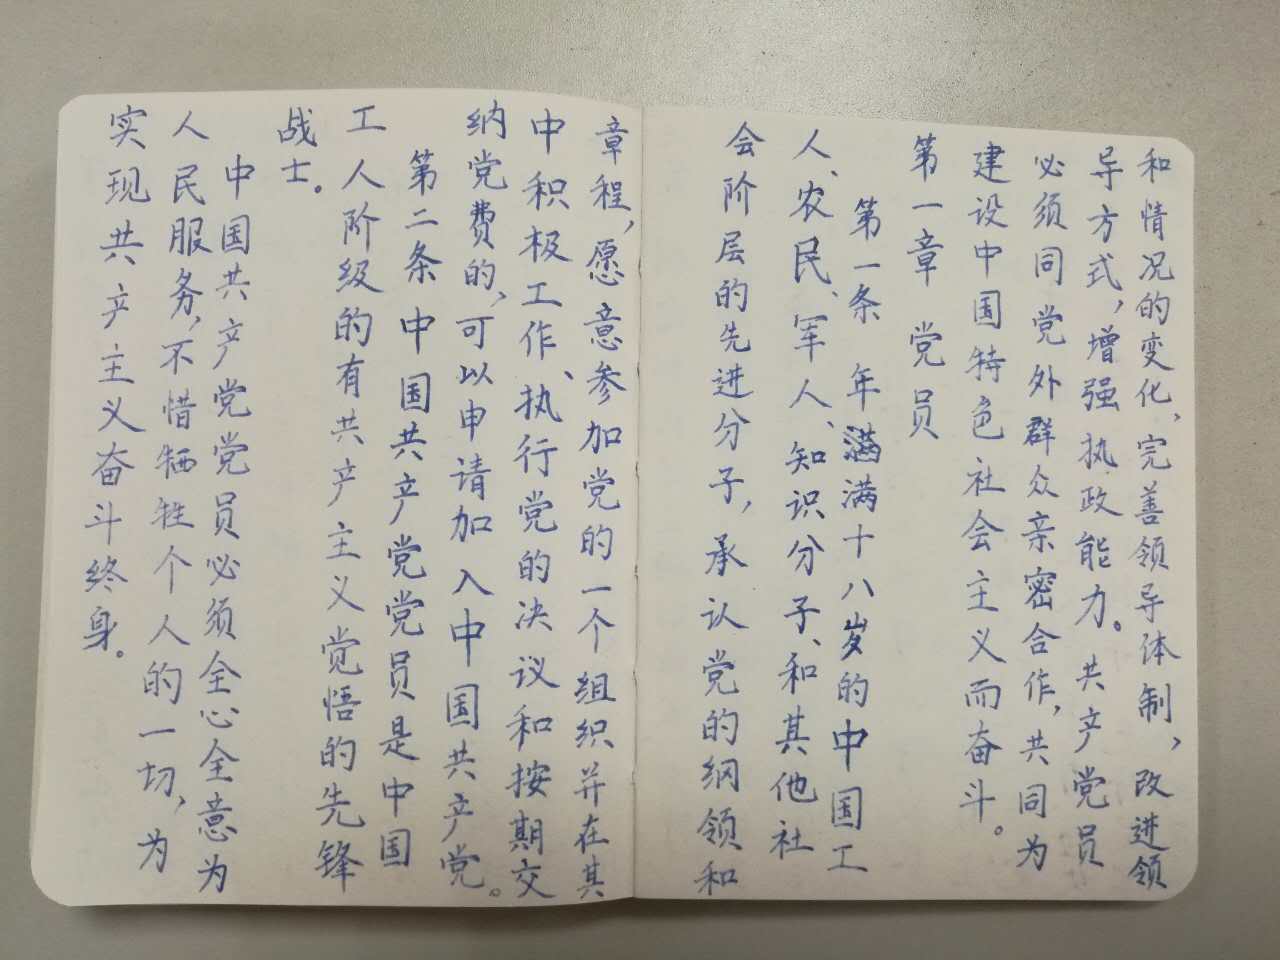 和情况的变化，完善领导体制，改进领
导方式，增强执政能力。共产党员
必须同党外群众亲密合作，共同为
建设中国特色社会主义而奋斗。
第一章 党员
第一条 年满满十八岁的中国工
人、农民、军人、知识分子、和其他社
会阶层的先进分子，承认党的纲领和
章程，愿意参加党的一个组织并在其
中积极工作、执行党的决议和按期交
纳党费的，可以申请加入中国共产党。
第二条 中国共产党党员是中国
工人阶级的有共产主义觉悟的先锋
战士。
中国共产党党员必须全心全意为
人民服务，不惜牺牲个人的一切，为
实现共产主义奋斗终身。